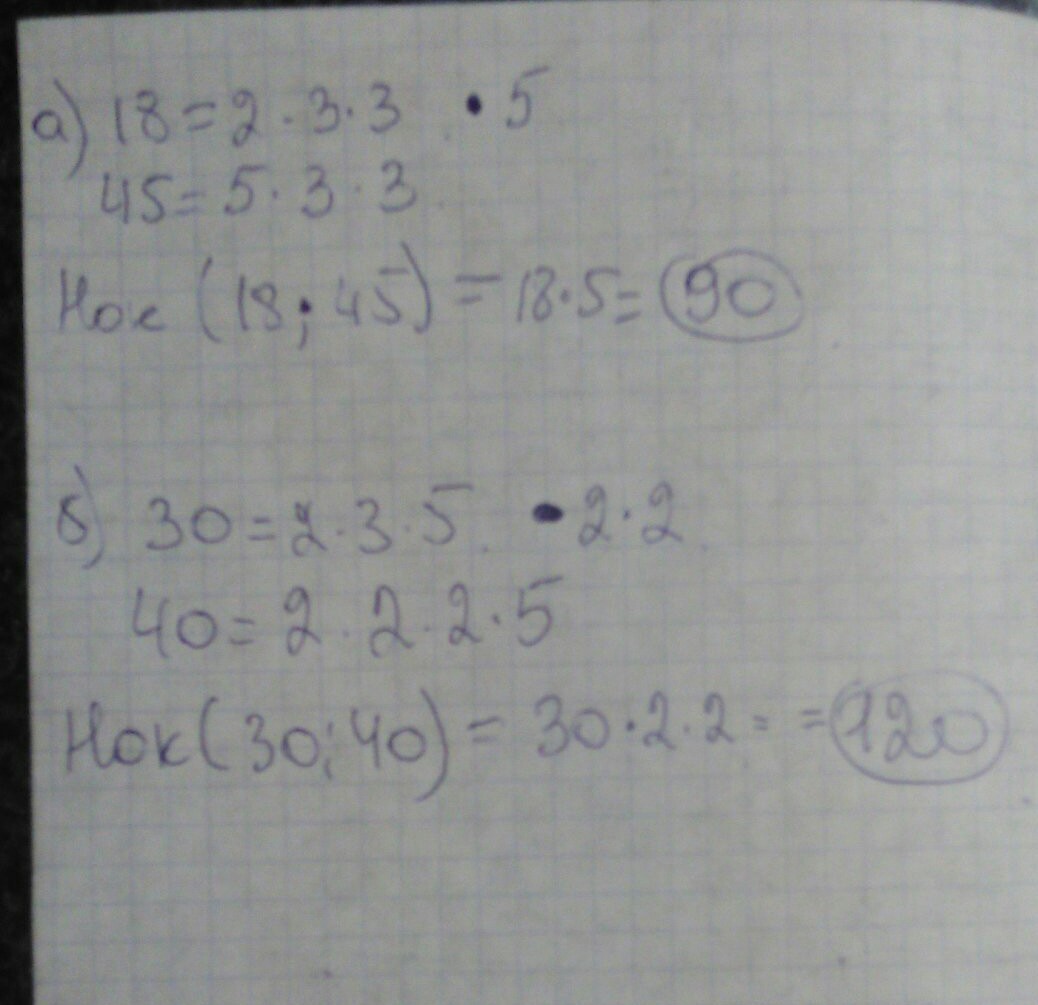 а) 18 = 2 · 3 · 3 · 5
45 = 5 · 3 · 3
Нок (18; 45) = 18 · 5 = 90
б) 30 = 2 · 3 · 5 · 2 · 2
40 = 2 · 2 · 2 · 5
Нок (30; 40) = 30 · 2 · 2 = = 120